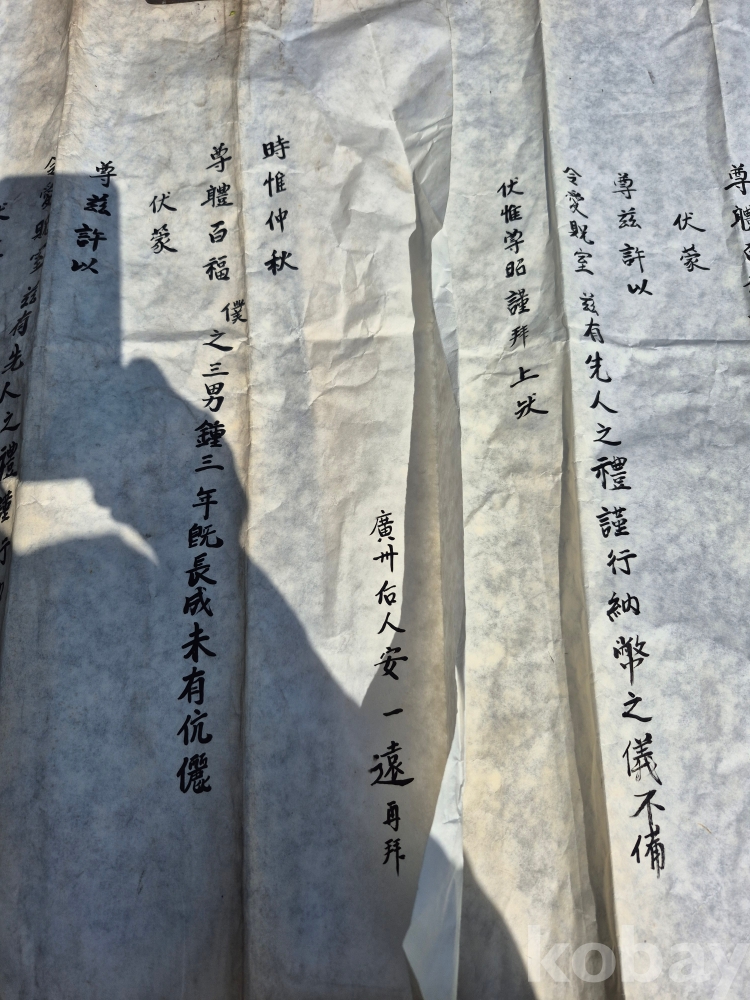 尊體百
伏蒙
尊兹許以
令愛貺室 兹有先人之禮謹行納幣之儀不備
伏惟尊昭謹拜 上狀
廣州后人安一遠再拜
時惟仲秋
尊體百福 僕之三男鍾三年既長成未有伉儷
伏蒙
尊兹許以
令愛貺室 兹有先人之禮謹行
kobay